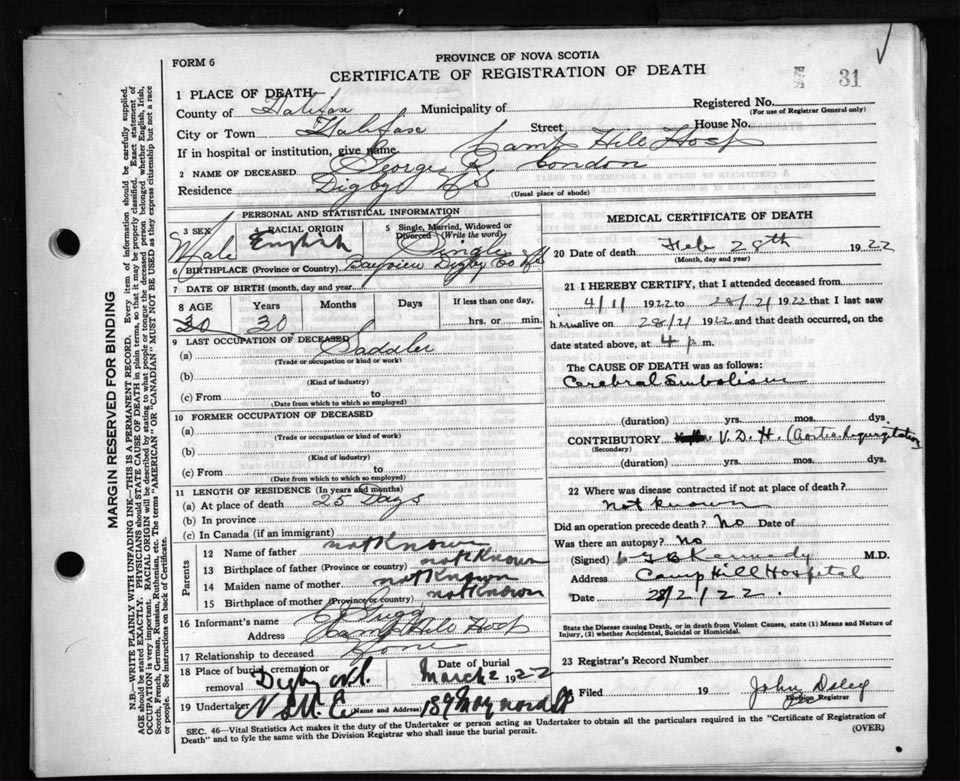 FORM 6
PROVINCE OF NOVA SCOTIA
CERTIFICATE OF REGISTRATION OF DEATH
31
1 PLACE OF DEATH
County of Halifax Municipality of Registered No.
(For use of Registrar General only)
City or Town Halifax Street House No.
If in hospital or institution, give name Camp Hill Hosp
2 NAME OF DECEASED George R Condon
Residence Digby N S
(Usual place of abode)
PERSONAL AND STATISTICAL INFORMATION
3 SEX Male
4 RACIAL ORIGIN English
5 Single, Married, Widowed or Divorced (Write the word) Single
6 BIRTHPLACE (Province or Country) Bayview Digby Co N S
7 DATE OF BIRTH (month, day and year)
8 AGE Years Months Days If less than one day,
30 30 hrs. or min.
9 LAST OCCUPATION OF DECEASED
(a) Saddler
(Trade or occupation or kind or work)
(b)
(Kind of industry)
(c) From to
(Date from which to which so employed)
10 FORMER OCCUPATION OF DECEASED
(a)
(Trade or occupation or kind of work)
(b)
(Kind of industry)
(c) From to
(Date from which to which so employed)
11 LENGTH OF RESIDENCE (In years and months)
(a) At place of death 25 Days
(b) In province
(c) In Canada (if an immigrant)
Parents
12 Name of father not Known
13 Birthplace of father (Province or country) not Known
14 Maiden name of mother not Known
15 Birthplace of mother (Province or country) not Known
16 Informant's name
Address Camp Hill Hosp
17 Relationship to deceased None
18 Place of burial, cremation or removal Digby N.S. Date of burial March 2 1922
19 Undertaker Name and Address 159 Maynard St
MEDICAL CERTIFICATE OF DEATH
20 Date of death Feb 28th 1922
(Month, day and year)
21 I HEREBY CERTIFY, that I attended deceased from
4/11 1922 to 28/2/ 1922 that I last saw
him alive on 28/2/ 1922 and that death occurred, on the
date stated above, at 4 p m.
The CAUSE OF DEATH was as follows:
Cerebral Embolism
(duration) yrs. mos. dys
CONTRIBUTORY V. D. H. (Aortic Regurgitation)
(Secondary)
(duration) yrs. mos. dys.
22 Where was disease contracted if not at place of death?
not known
Did an operation precede death? No Date of
Was there an autopsy? No
(Signed) Kennedy M.D.
Address Camp Hill Hospital
Date 28/2/22.
State the Disease causing Death, or in death from Violent Causes, state (1) Means and Nature of Injury, (2) whether Accidental, Suicidal or Homicidal.
23 Registrar's Record Number
Filed 19 John
Division Registrar
SEC. 46—Vital Statistics Act makes it the duty of the Undertaker or person acting as Undertaker to obtain all the particulars required in the "Certificate of Registration of
Death" and to fyle the same with the Division Registrar who shall issue the burial permit. (OVER)
MARGIN RESERVED FOR BINDING
N.B.—WRITE PLAINLY WITH UNFADING INK—THIS IS A PERMANENT RECORD. Every item of information should be carefully supplied.
AGE should be stated EXACTLY. PHYSICIANS should STATE CAUSE OF DEATH in plain terms, so that it may be properly classified. Exact statement of
OCCUPATION is very important. RACIAL ORIGIN will be described by stating to what people or tongue the deceased person belonged whether English, Irish,
Scotch, French, German, Russian, Ruthenian, etc. The terms "AMERICAN" or "CANADIAN" MUST NOT BE USED as they express citizenship but not a race
or people. See instructions on back of Certificate.